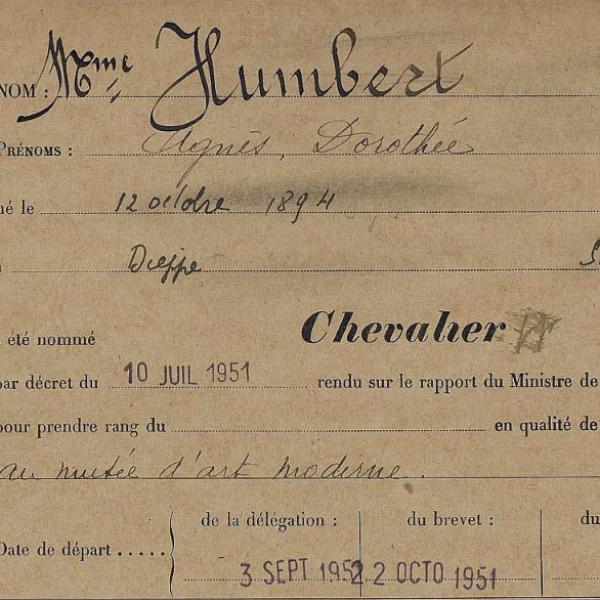 NOM : Mme Humbert
PRÉNOMS : Agnès, Dorothée
né le 12 octobre 1894
Dieppe
été nommé Chevalier
par décret du 10 JUIL 1951 rendu sur le rapport du Ministre de
pour prendre rang du en qualité de
au musée d'art moderne.
de la délégation : du brevet : du
Date de départ .....
3 SEPT 195 22 OCTO 1951